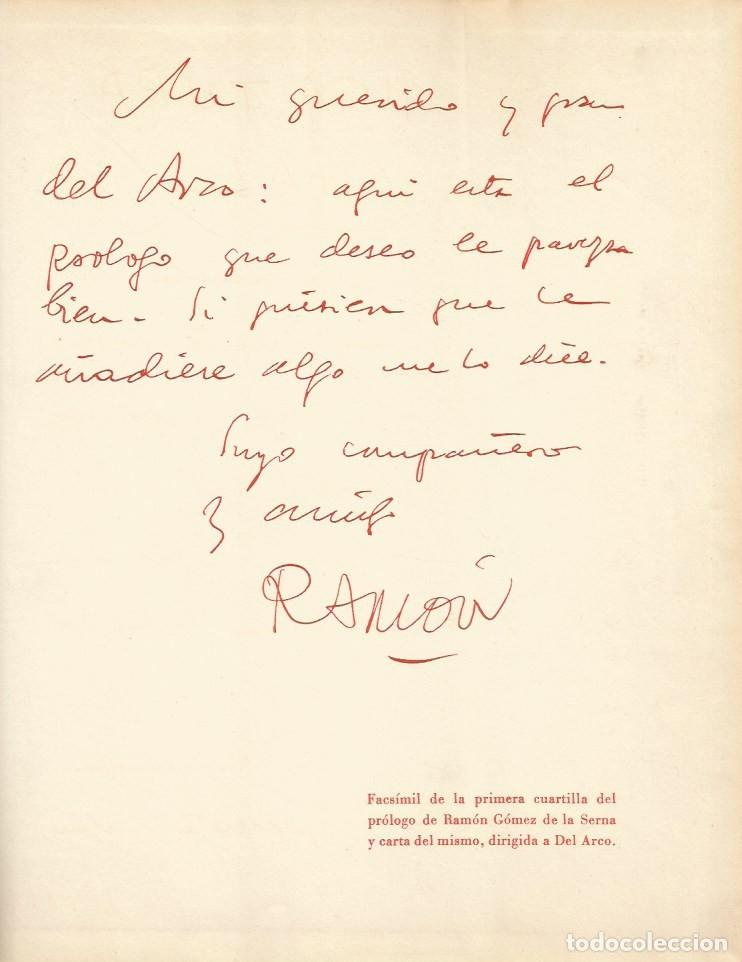 Mi querido y gran
del Arco: aqui esta el
prologo que deseo le parezca
bien. Si quisiera que le
añadiese algo me lo dice.
Suyo compañero
y amigo
RAMÓN
Facsímil de la primera cuartilla del
prólogo de Ramón Gómez de la Serna
y carta del mismo, dirigida a Del Arco.
todocoleccion